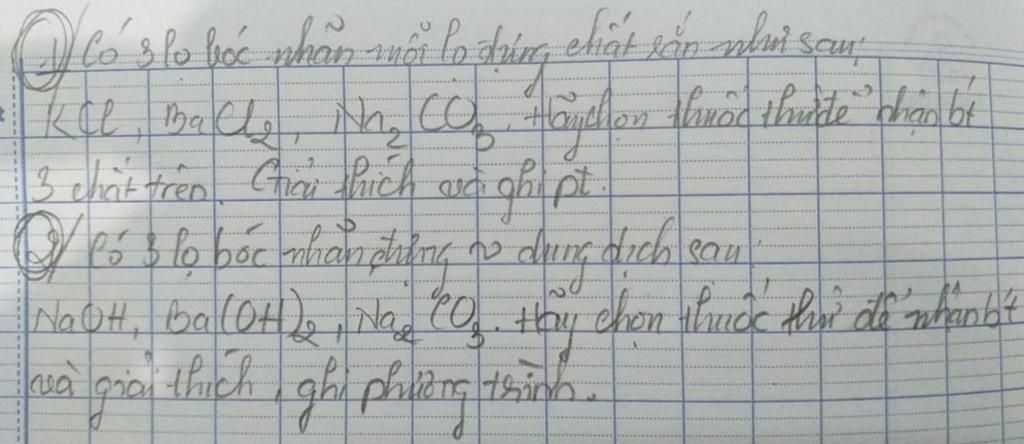 1/ Có 3 lọ bóc nhãn mỗi lọ đựng chất rắn như sau:
KCl, BaCl2, Na2CO3. Hãy chọn thuốc thử để nhận bt
3 chất trên. Giải thích và ghi pt.
2/ Có 3 lọ bóc nhãn đựng dung dịch sau:
NaOH, Ba(OH)2, Na2CO3. Hãy chọn thuốc thử để nhận bt
và giải thích, ghi phương trình.